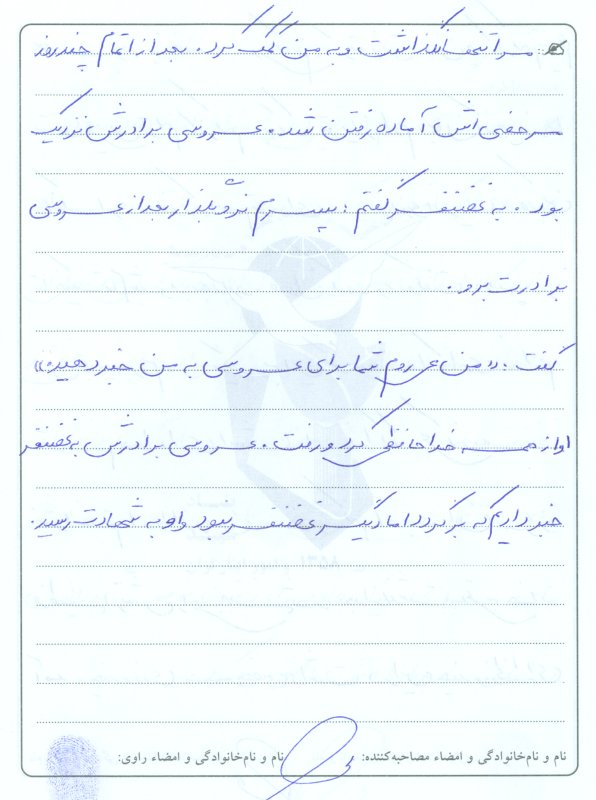 مرا تنها نگذاشت و به من کمک کرد. بعد از اتمام چند روز
مرخصی اش آماده رفتن شد. عروسی برادرش نزدیک
بود. به غضنفر گفتم: پسرم نرو بگذار بعد از عروسی
برادرت برو.
گفت: «من می روم شما برای عروسی به من خبر دهید»
او از همه خداحافظی کرد و رفت. عروسی برادرش به غضنفر
خبر دادیم که برگردد اما دیگر غضنفر نبود و او به شهادت رسید.
نام و نام‌خانوادگی و امضاء مصاحبه‌کننده: نام و نام‌خانوادگی و امضاء راوی: